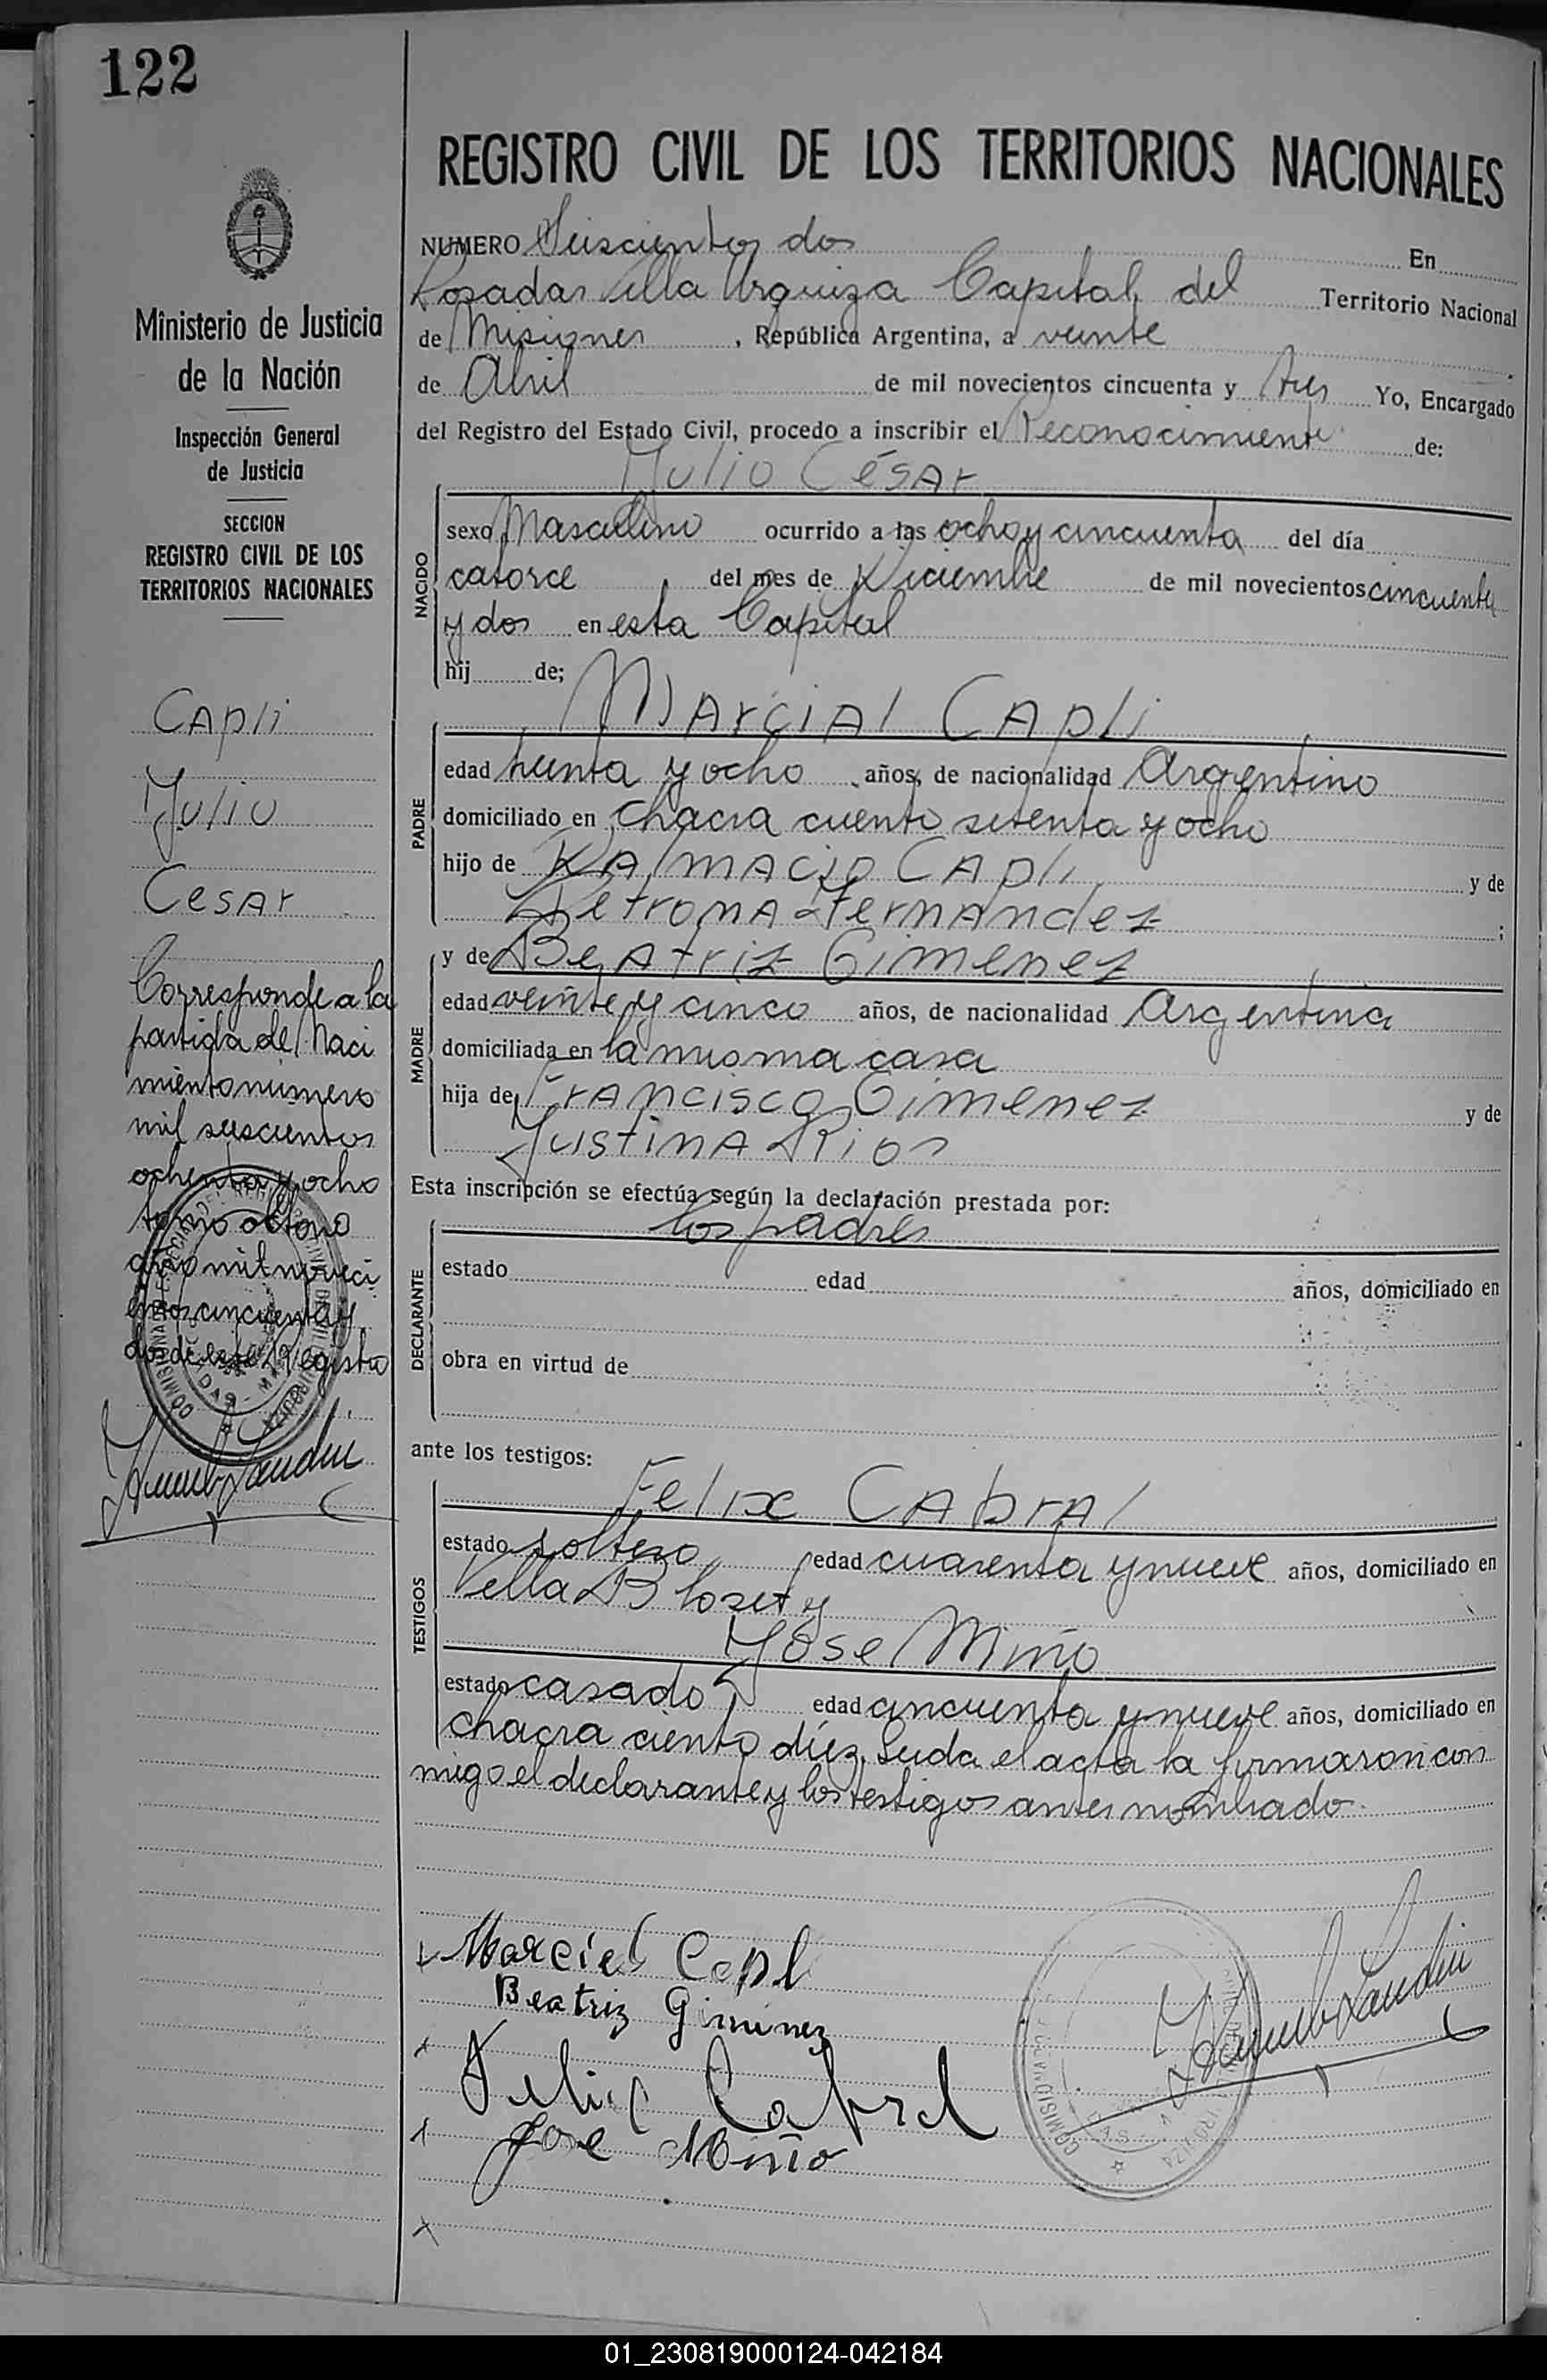 122
REGISTRO CIVIL DE LOS TERRITORIOS NACIONALES
Ministerio de Justicia
de la Nación
Inspección General
de Justicia
SECCION
REGISTRO CIVIL DE LOS
TERRITORIOS NACIONALES
Capli
Julio
Cesar
Corresponde a la
partida de Naci
miento número
mil seiscientos
ochenta y ocho
tomo octono
año mil noveci
entos cincuenta y
dos de este Registro
NUMERO Seiscientos dos En
Posadas Villa Urquiza Capital del Territorio Nacional
de Misiones, República Argentina, a veinte
de Abril de mil novecientos cincuenta y tres Yo, Encargado
del Registro del Estado Civil, procedo a inscribir el Reconocimiento de:
Julio César
NACIDO
sexo Masculino ocurrido a las ocho y cincuenta del día
catorce del mes de Diciembre de mil novecientos cincuenta
y dos en esta Capital
hij de;
Marcial Capli
PADRE
edad treinta y ocho años, de nacionalidad Argentino
domiciliado en chacra ciento setenta y ocho
hijo de Dalmacio Capli y de
Petrona Fernandez;
y de Beatriz Gimenez
MADRE
edad veinte y cinco años, de nacionalidad Argentina
domiciliada en la misma casa
hija de Francisco Gimenez y de
Justina Rios
Esta inscripción se efectúa según la declaración prestada por:
los padres
DECLARANTE
estado edad años, domiciliado en
obra en virtud de
ante los testigos:
Felix Cabral
TESTIGOS
estado soltero edad cuarenta y nueve años, domiciliado en
Villa Blosety
José Miño
estado casado edad cincuenta y nueve años, domiciliado en
chacra ciento diez. Leida el acta la firmaron con
migo el declarante y los testigos antes nombrado.
Marcial Capli
Beatriz Giminez
Felix Cabral
Jose Miño
01_230819000124-042184